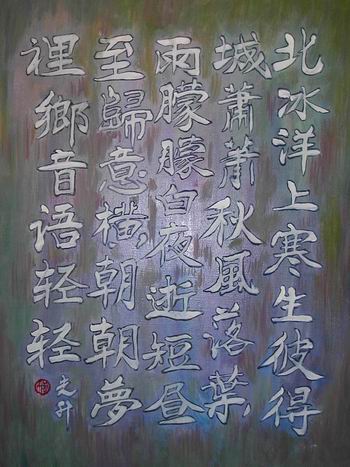 北冰洋上寒生彼得
城萧萧秋風落葉
雨朦朦白夜逝短昼
至歸意横朝朝夢
裡鄉音语轻轻